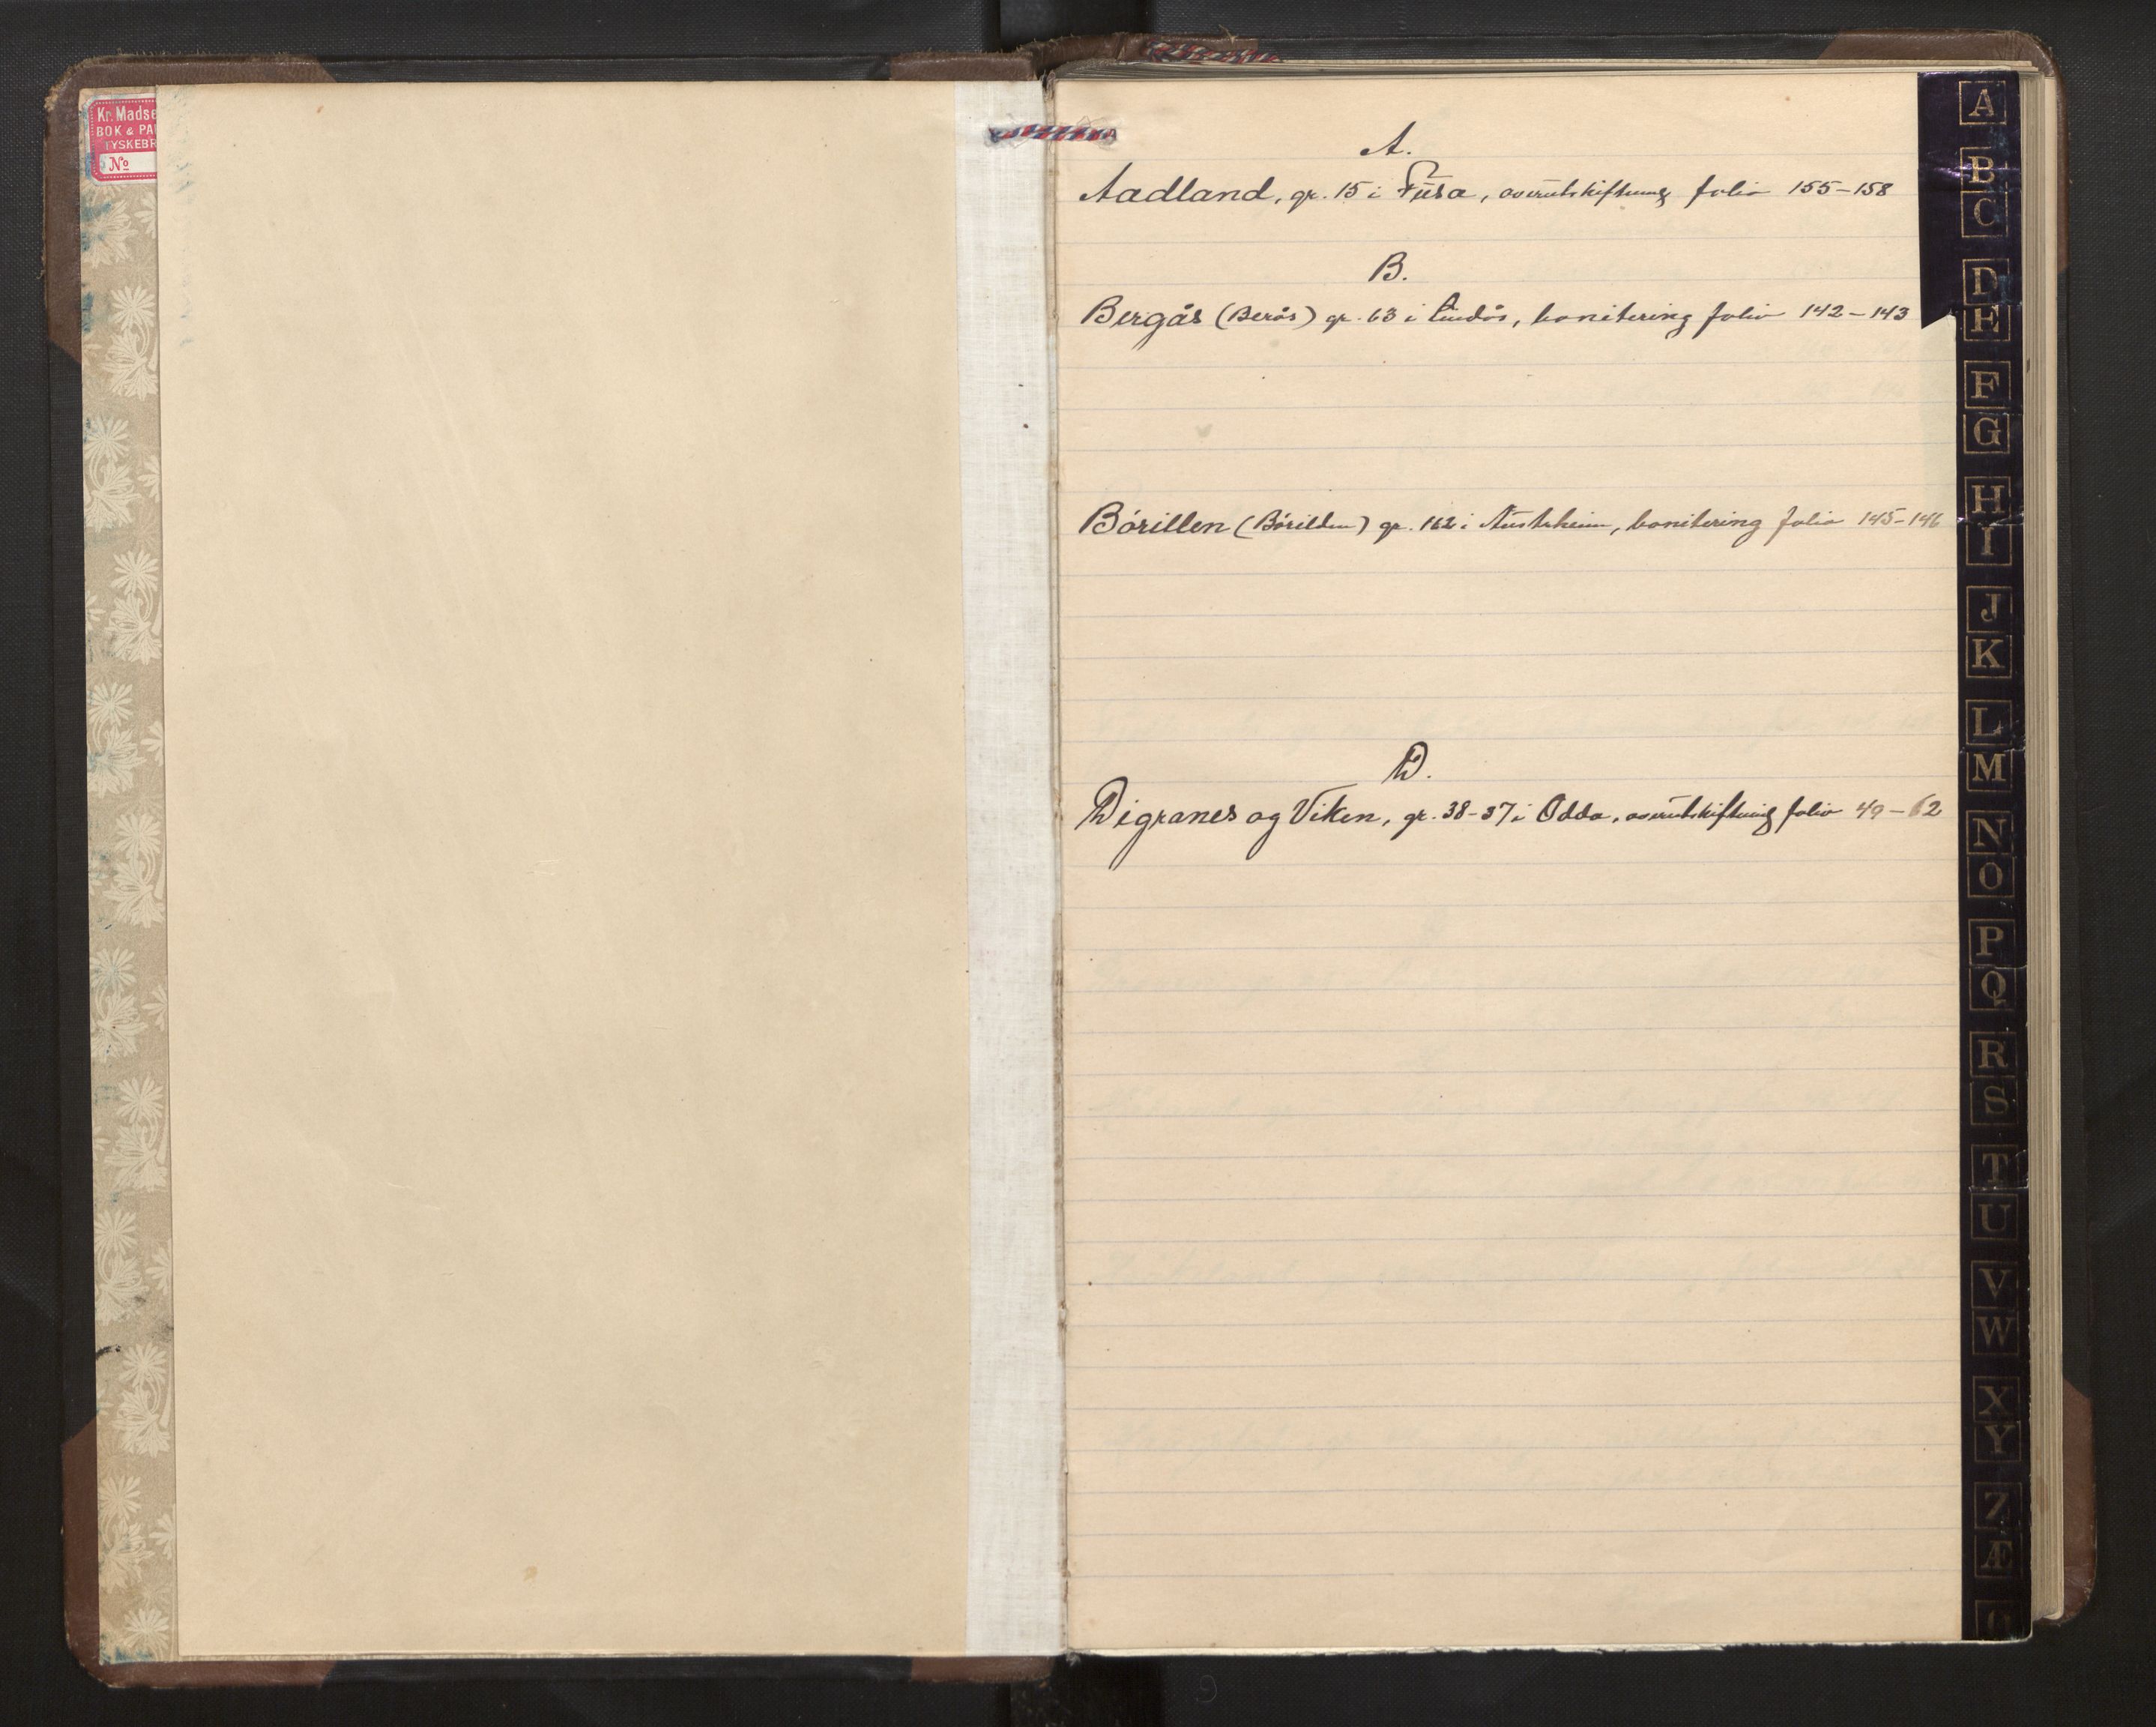 Kr. Madse
BOK & PA
TYSKEBR
No
A.
Aadland, gr. 15 i Fusa, overutskiftning folio 155-158
B.
Bergås (Berås) gr. 63 i Lindås, bonitering folio 142-143
Börillen (Börilden) gr. 162 i Austrheim, bonitering folio 145-146
D.
Digranes og Viken, gr. 38-37 i Odda, overutskiftning folio 49-62
A
B
C
D
E
F
G
H
I
J
K
L
M
N
O
P
Q
R
S
T
U
V
W
X
Y
Z
Æ